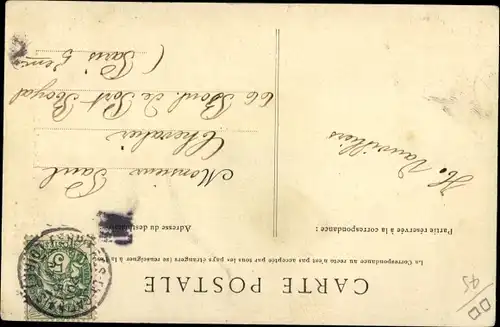 CARTE POSTALE
La Correspondance au recto n'est pas acceptée par tous les pays étrangers (se renseigner à la
Partie réservée à la correspondance :
Adresse du destinataire
H. Vauvilliers
Monsieur Paul
Chevalier
66 Boul. de Port Royal
(Paris 5eme
5
45